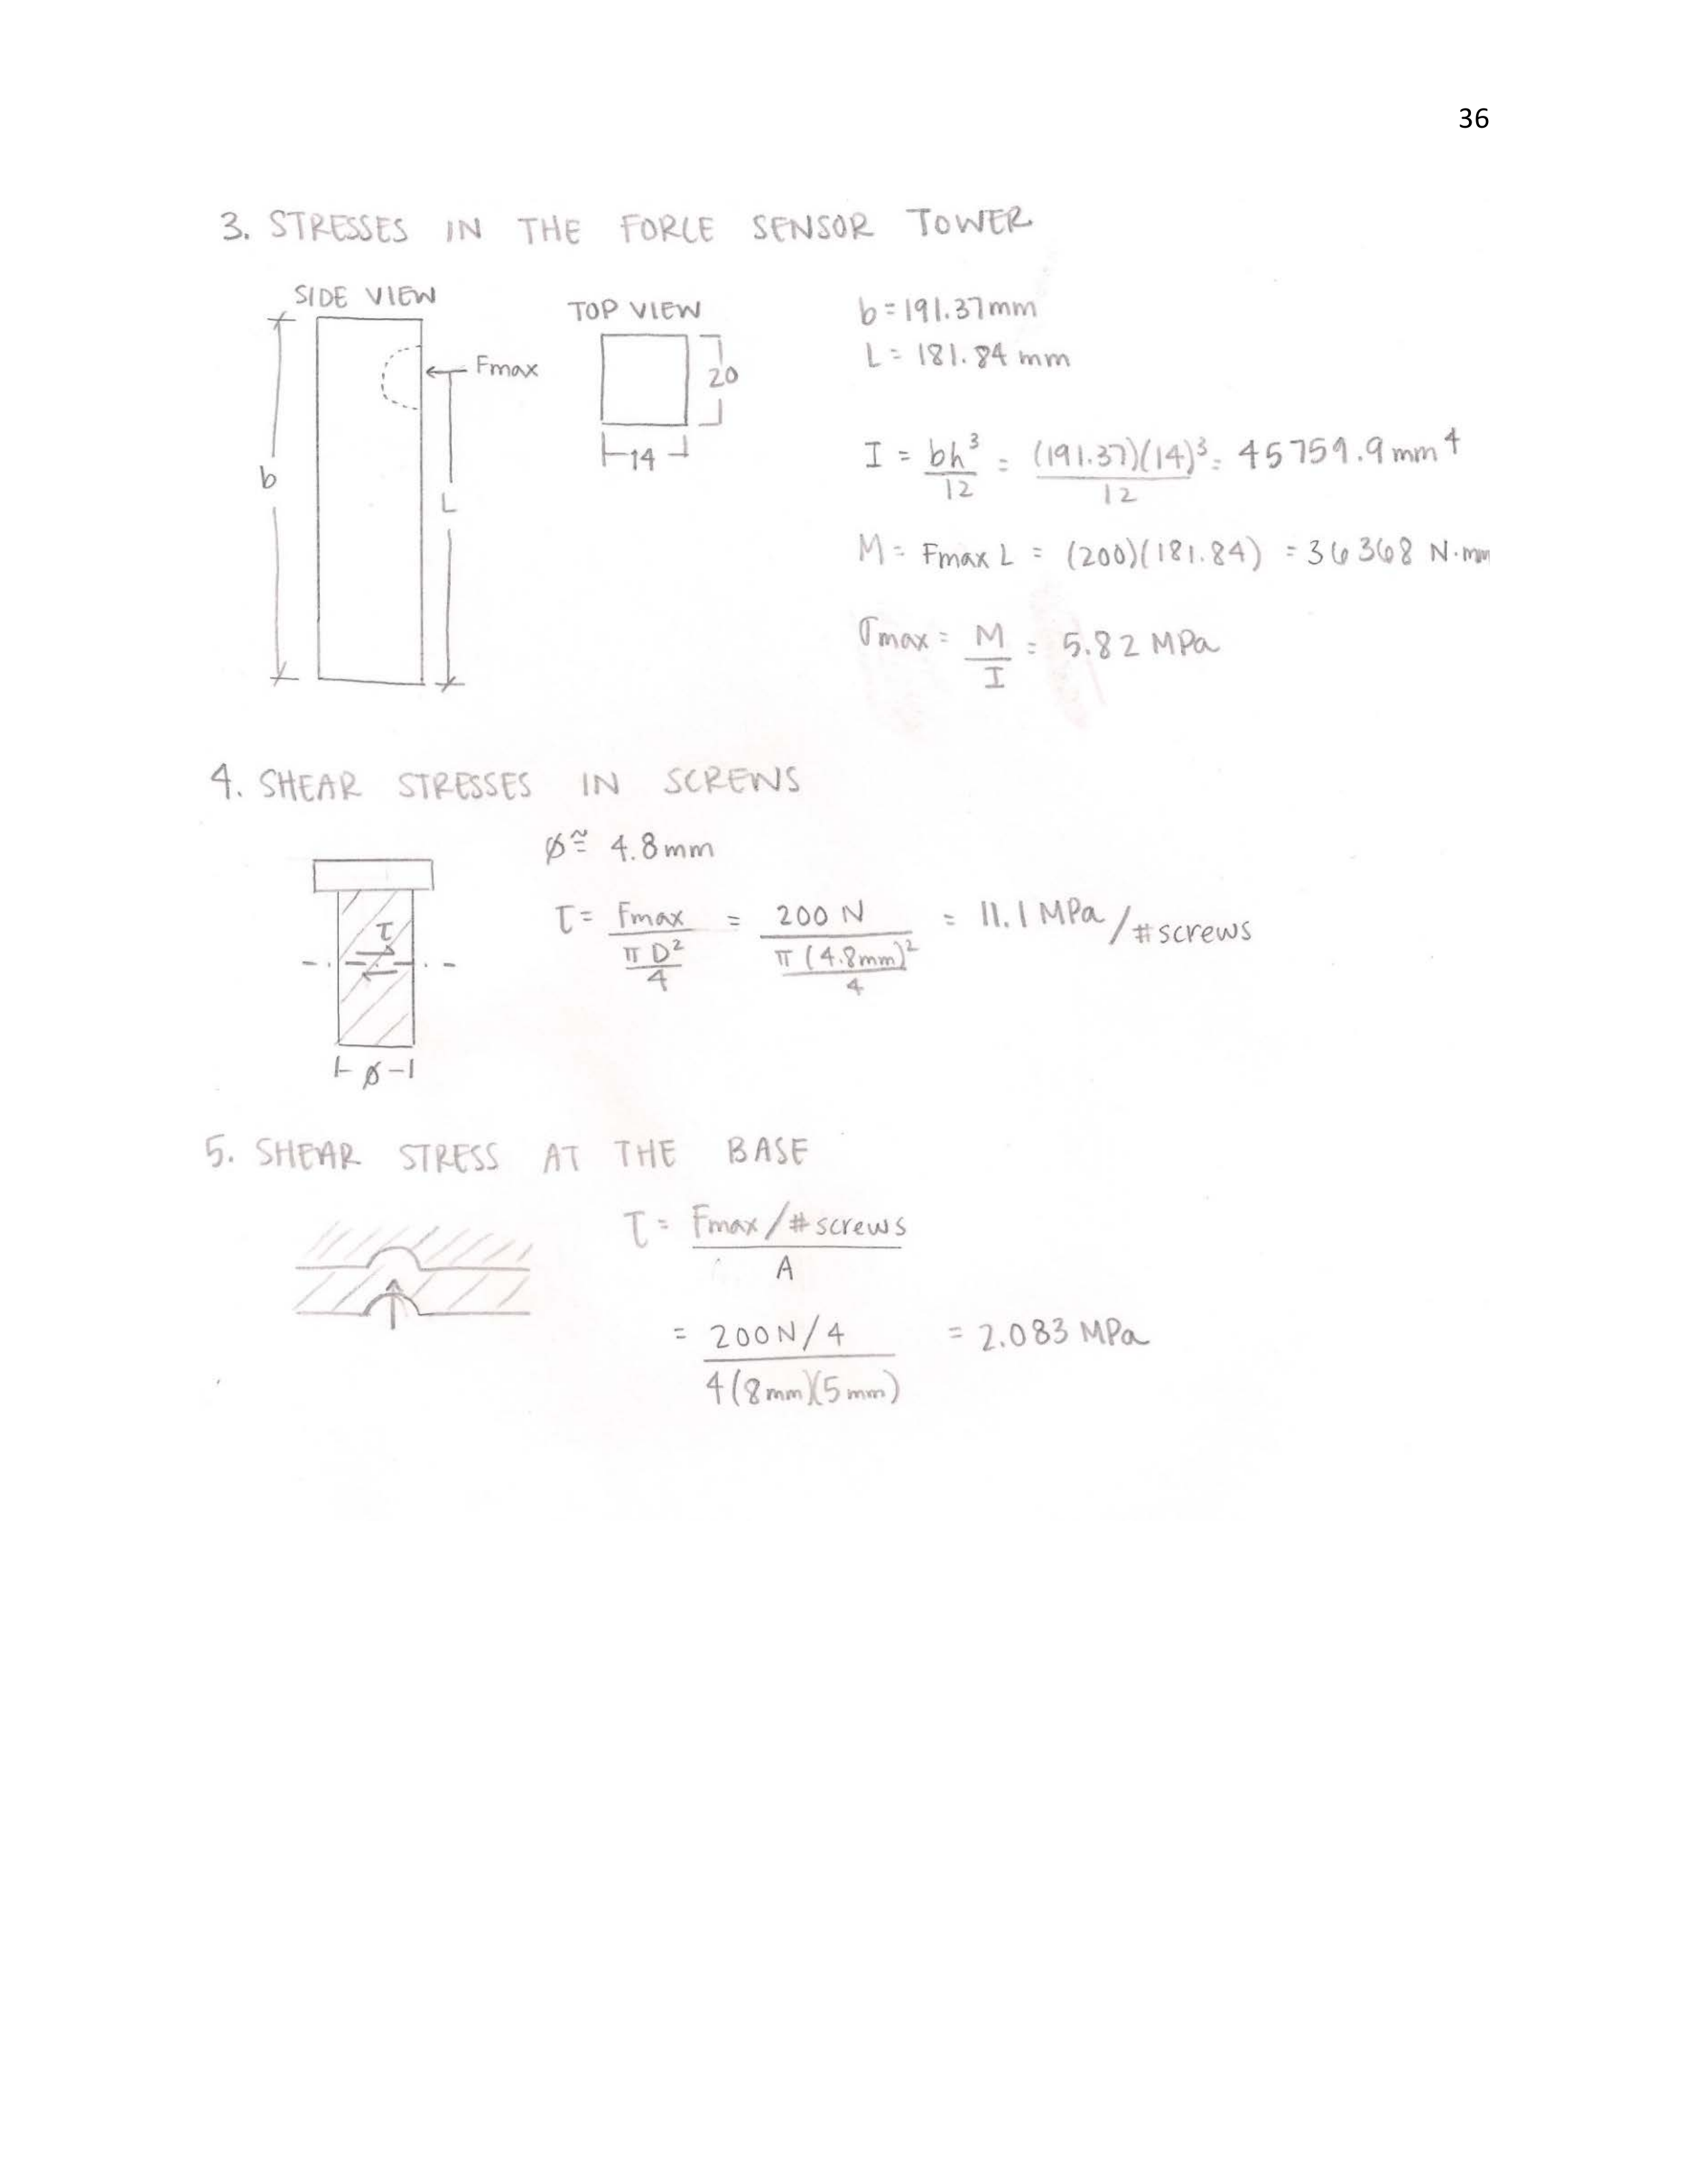 36
3. STRESSES IN THE FORCE SENSOR TOWER
SIDE VIEW
TOP VIEW
b
Fmax
L
20
14
b = 191.37mm
L = 181.84 mm
I = bh³/12 = (191.37)(14)³/12 = 45759.9 mm⁴
M = Fmax L = (200)(181.84) = 36368 N·mm
σmax = M/I = 5.82 MPa
4. SHEAR STRESSES IN SCREWS
τ
ø
ø ≅ 4.8mm
τ = Fmax/(πD²/4) = 200 N/(π(4.8mm)²/4) = 11.1 MPa/#screws
5. SHEAR STRESS AT THE BASE
τ = Fmax/#screws / A
= 200N/4 / 4(8mm)(5mm) = 2.083 MPa